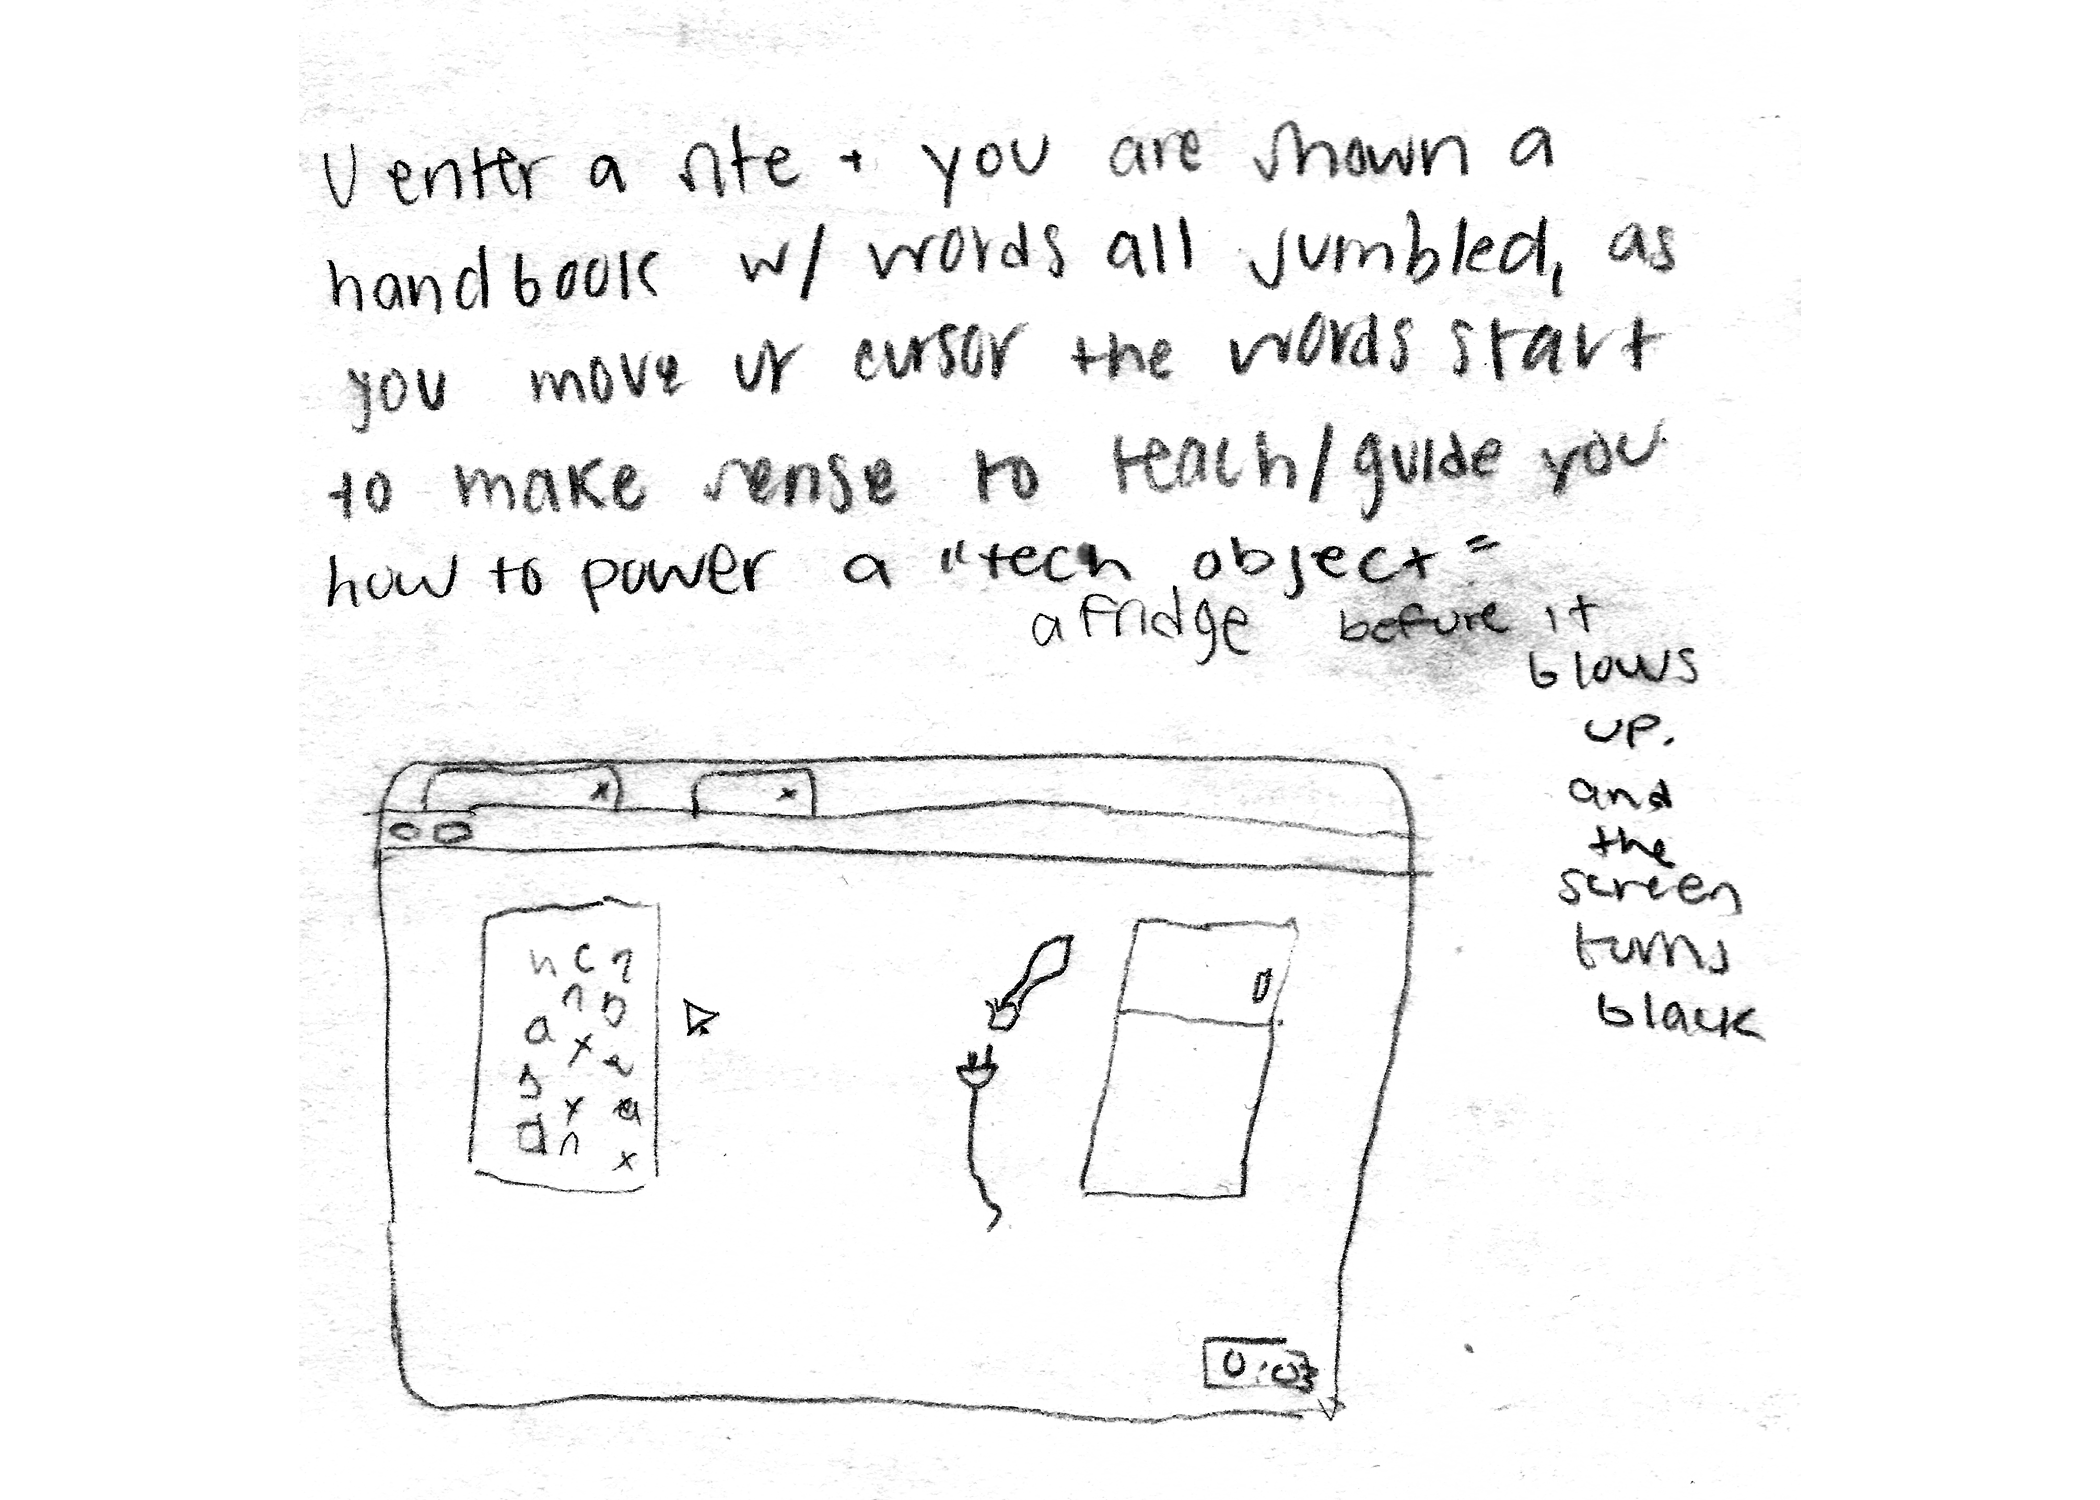 U enter a site + you are shown a
handbook w/ words all jumbled, as
you move ur cursor the words start
to make sense to teach/guide you
how to power a "tech object"
a fridge before it
blows
up.
and
the
screen
turns
black
x x
h c
n
a x e
x a
d n x